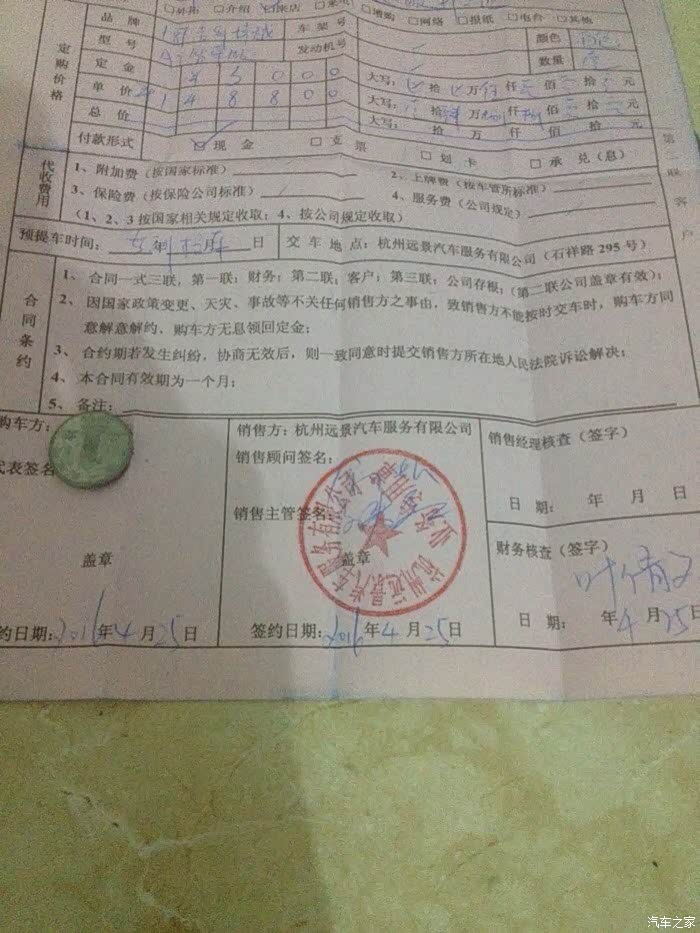 □外拓 □介绍 ☑来店 □来电 □增购 □网络 □报纸 □电台 □其他
品牌
车架号
颜色
型号
发动机号
数量
定购价格
定金 5000
大写: 拾 万 仟 佰 拾 元
单价 148800
大写: 拾 万 仟 佰 拾 元
总价
大写: 拾 万 仟 佰 拾 元
付款形式 ☑现金 □支票 □划卡 □承兑(息)
代收费用
1、附加费(按国家标准)
2、上牌费(按车管所标准)
3、保险费(按保险公司标准)
4、服务费(公司规定)
(1、2、3按国家相关规定收取;4、按公司规定收取)
第二联客户
预提车时间: 日
交车地点:杭州远景汽车服务有限公司(石祥路295号)
合同条约
1、合同一式三联,第一联:财务;第二联:客户;第三联:公司存根;(第二联公司盖章有效);
2、因国家政策变更、天灾、事故等不关任何销售方之事由,致销售方不能按时交车时,购车方同
意解意解约、购车方无息领回定金;
3、合约期若发生纠纷,协商无效后,则一致同意时提交销售方所在地人民法院诉讼解决;
4、本合同有效期为一个月;
5、备注:
购车方:
代表签名
盖章
签约日期:2016年4月25日
销售方:杭州远景汽车服务有限公司
销售顾问签名:
销售主管签名:
盖章
杭州远景汽车服务有限公司
签约日期:2016年4月25日
销售经理核查(签字)
日期: 年 月 日
财务核查(签字)
日期: 年4月25日
汽车之家